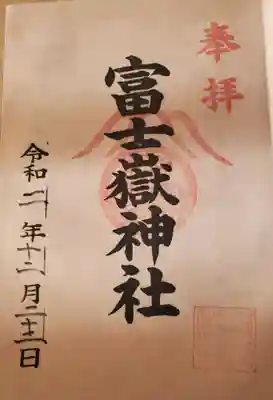 奉拝
富士嶽神社
令和二年十二月二十二日